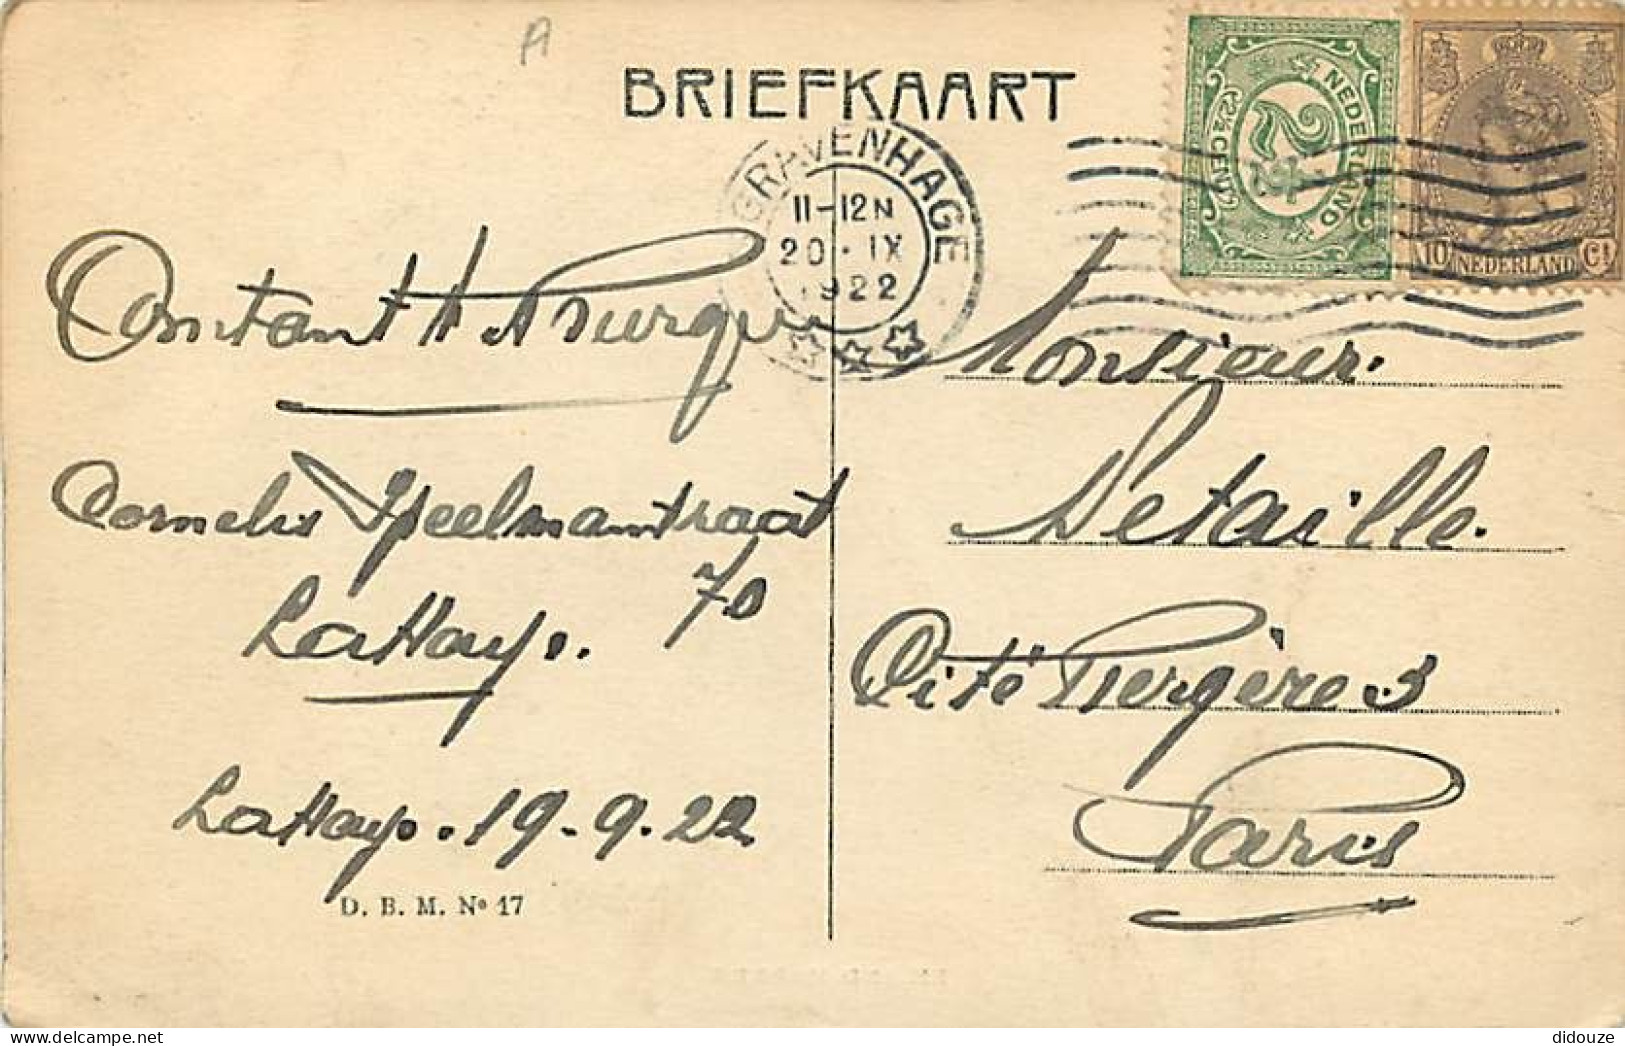 A
BRIEFKAART
NEDERLAND
2½ CENT
10 Ct
NEDERLAND
GRAVENHAGE
11-12N
20·IX
1922
Constant
Cornelis Speelmanstraat
70
La Haye.
La Haye. 19-9.22
D. B. M. No 17
Monsieur.
Detaille.
Cité Bergère 3
Paris
didouze